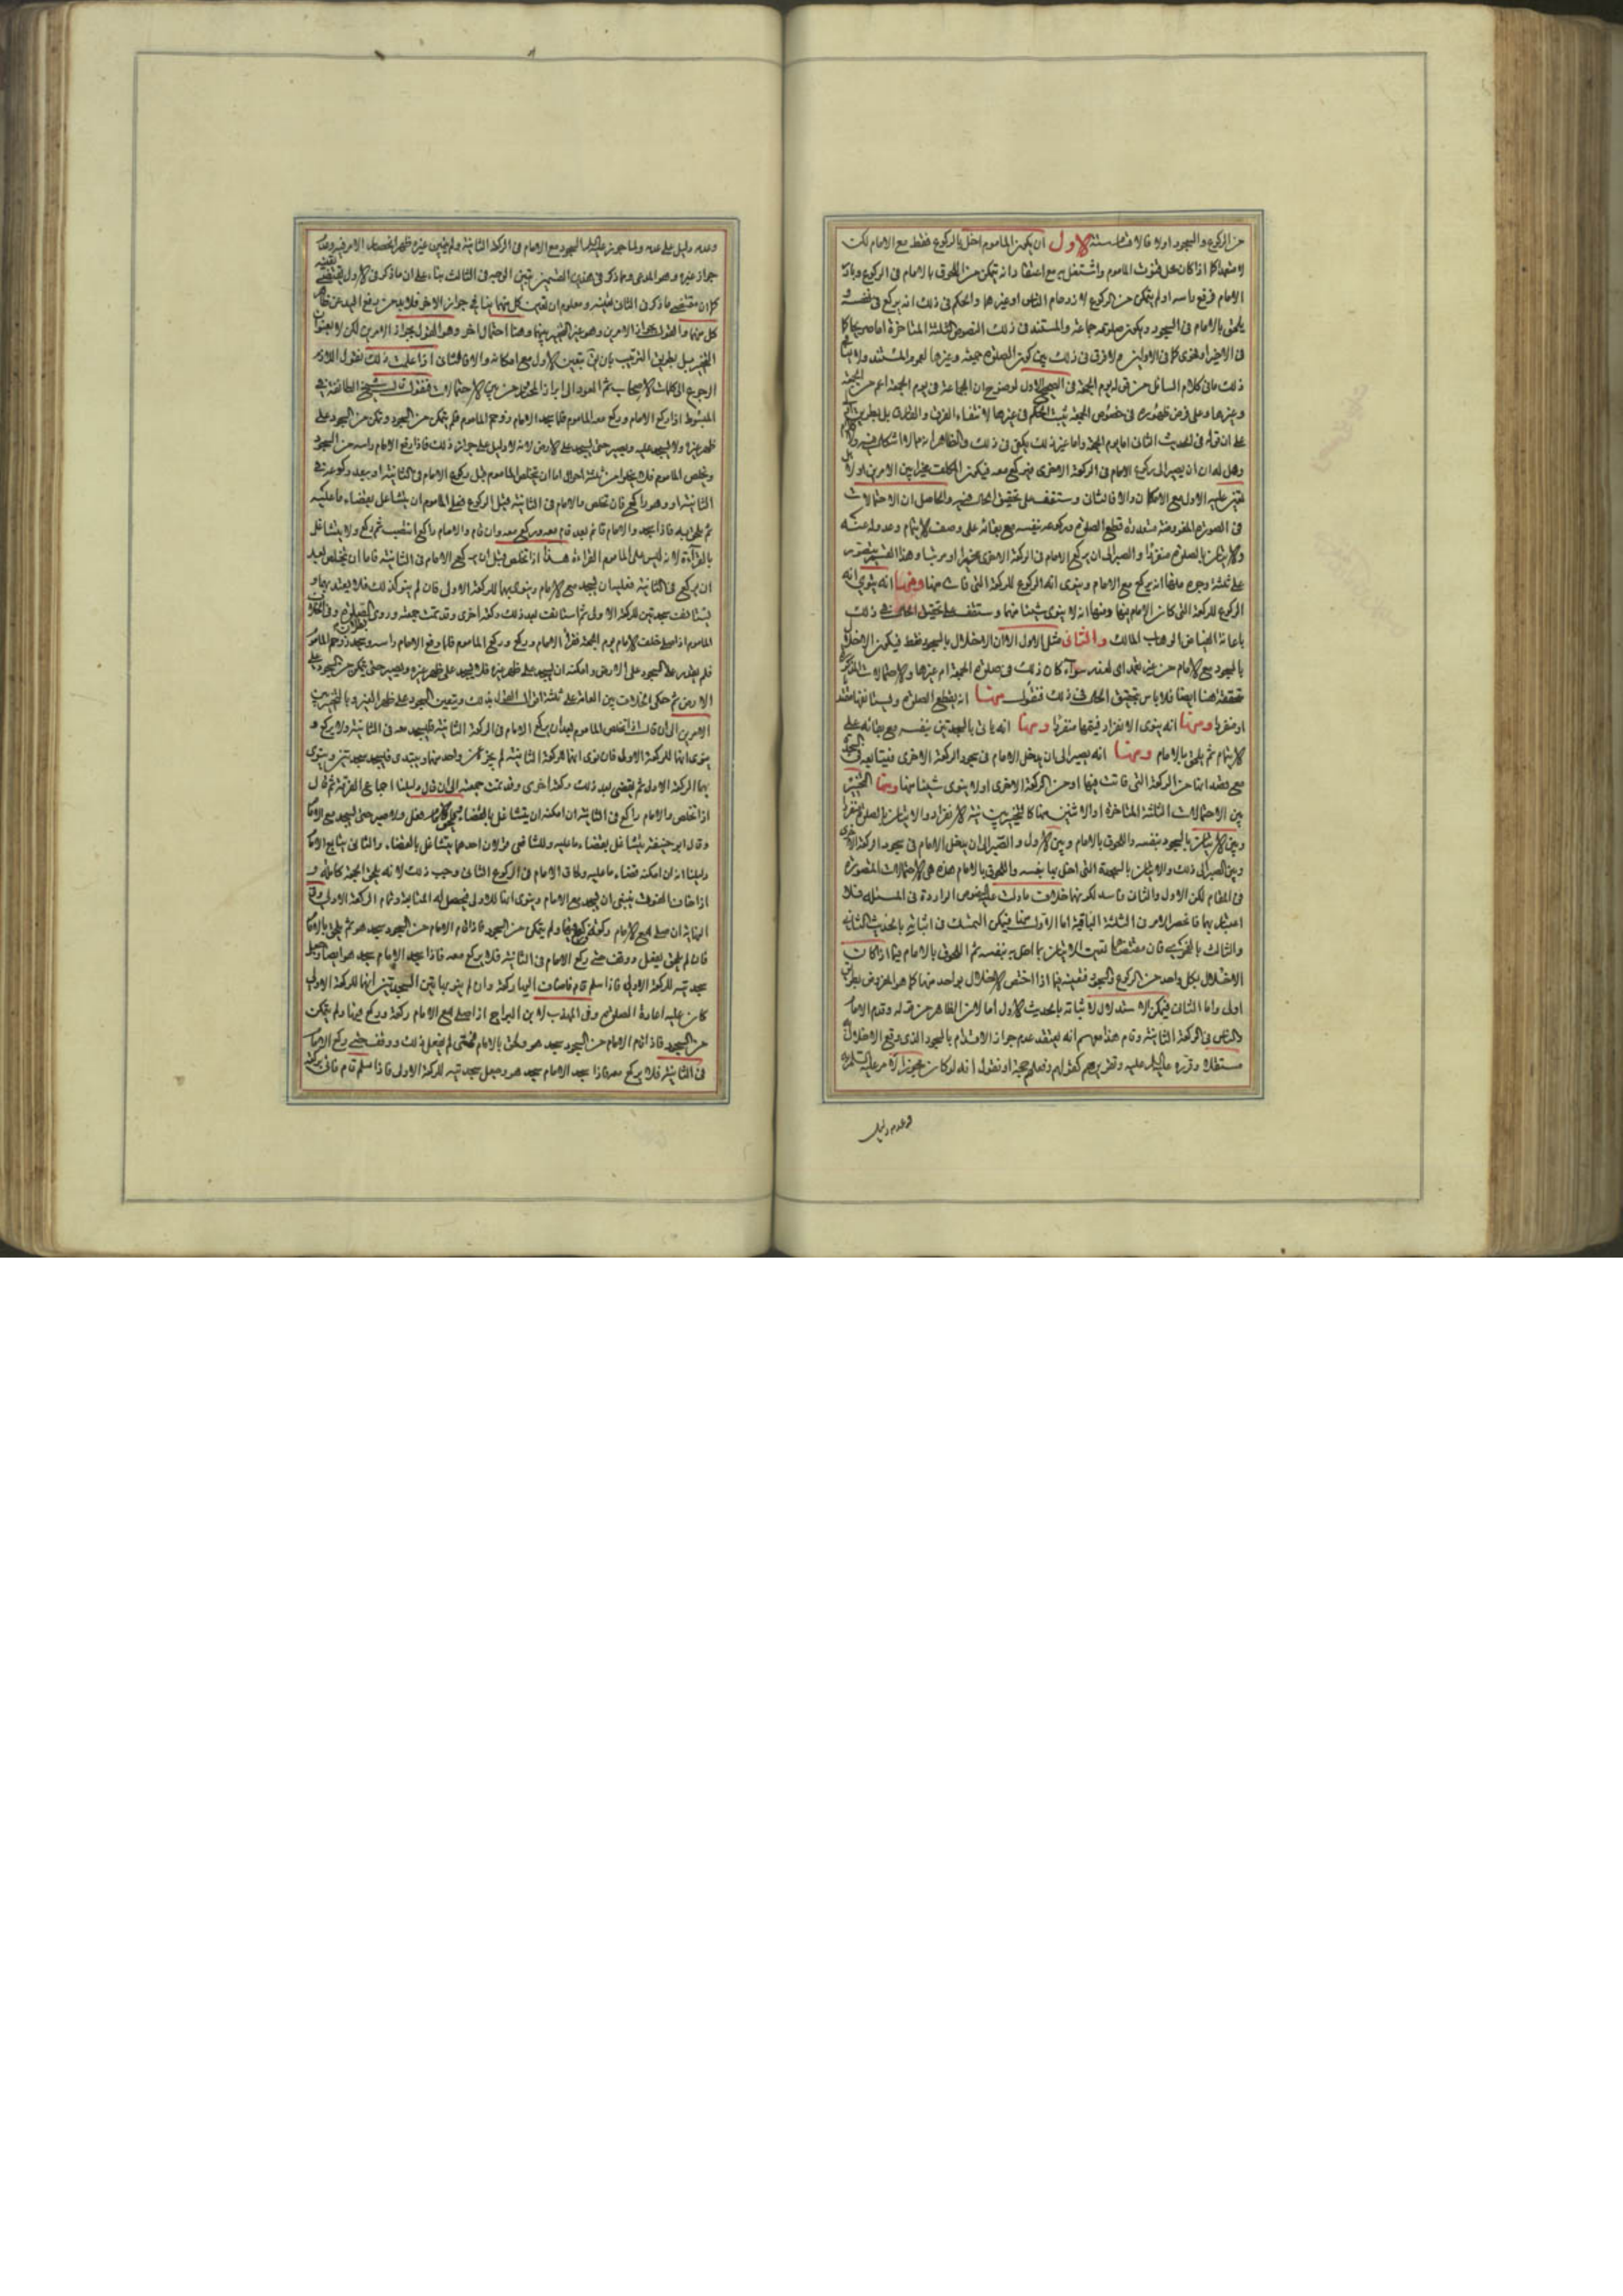 من الركوع والسجود اولا فالاقسام ستة الاول ان يكون الماموم اخل بالركوع فقط مع الامام لكن
لا متعمدا كما اذا كان محل قنوت الماموم واشتغل به مع اعتقاد انه يتمكن من اللحوق بالامام في الركوع
الامام فرفع راسه او لم يتمكن من الركوع لازدحام الناس او غيرها والحكم في ذلك انه يركع في نفسه و
يلحق بالامام في السجود ويكون صلوته جماعة والمستند في ذلك النصوص الثلثة المتاخرة اما صريحا كما
في الاخير او فحوى كما في الاولين ولا فرق في ذلك بين كون الصلوة جمعة وغيرها لعموم المستند
ذلك ما في كلام السائل من قوله يوم الجمعة في الصحيح الاول لوضوح ان الجماعة في يوم الجمعة اعم من الجمعة
وغيرها وعلى فرض ظهوره في خصوص الجمعة يثبت الحكم في غيرها لانتفاء الفرق
على ان قوله في الحديث الثاني اما يوم الجمعة واما غير ذلك يكفي في ذلك والظاهر انه مما لا اشكال فيه
وهل له ان يصير الى ركوع الامام في الركعة الاخرى فيركع معه فيكون المكلف مخيرا بين الامرين او لا بل
يتعين عليه الاول مع الامكان والا فالثاني وستقف على تحقيق الحال فيه والحاصل ان الاحتمالات
في الصورة المفروضة متعددة قطع الصلوة وركوعه بنفسه مع بقائه على وصف الايتمام وعدوله عنه
والاتيان بالصلوة منفردا والصبر الى ان يركع الامام في الركعة الاخرى مخيرا او مرتبا وهذا القسم يتصور
على ثلثة وجوه منها انه يركع مع الامام وينوي انه الركوع للركعة التي فات منها ومنها انه ينوي انه
الركوع للركعة التي كان الامام فيها ومنها انه لا ينوي شيئا منهما وستقف على تحقيق الحال في ذلك
باعانة الفياض الوهاب المالك والثاني مثل الاول الا ان الاخلال بالسجود فقط فيكون الاخلال
بالسجود مع الامام من غير تعمد اي لعذر سواء كان ذلك في صلوة الجمعة ام غيرها والاحتمالات المذكورة
متحققة هنا ايضا فلا باس بتحقيق الحال في ذلك فنقول منها انه يقطع الصلوة ويستانفها مقتديا
او منفردا ومنها انه ينوي الانفراد فيتمها منفردا ومنها انه ياتي بالسجدتين بنفسه مع بقائه على
الايتمام ثم يلحق بالامام ومنها انه يصبر الى ان يدخل الامام في سجود الركعة الاخرى فيتابعه في السجدة
مع قصد انها من الركعة التي فاتت فيها او من الركعة الاخرى او لا ينوي شيئا منها ومنها التخيير
بين الاحتمالات الثلثة المتاخرة او الاثنين منها كالتخيير بين نية الانفراد والاتيان بالصلوة منفردا
وبين الاتيان بالسجود بنفسه واللحوق بالامام وبين الاول والصبر الى ان يدخل الامام في سجود الركعة الاخرى
وبين الصبر الى ذلك والاتيان بالسجدة التي اخل بها بنفسه واللحوق بالامام هذه هي الاحتمالات المتصورة
في المقام لكن الاول والثاني فاسد لكونهما خلاف ما دلت عليه النصوص الواردة في المسئلة فلا
اعتبار بهما فانحصر الامر في الثلثة الباقية اما الاول منها فيمكن التمسك في اثباته بالحديث الثاني
والثالث بالفحوى فان مقتضاهما تعين الاتيان بما اخل به بنفسه ثم اللحوق بالامام فيما اذا كان
الاخلال بكل واحد من الركوع والسجود ففيما اذا اختص الاخلال بواحد منهما كما هو المفروض بطريق
اولى واما الثاني فيمكن الاستدلال لاثباته بالحديث الاول اما لان الظاهر من قوله وقام الامام
والناس في الركعة الثانية وقام هذا معهم انه يعتقد عدم جواز الاقدام بالسجود الذي وقع الاخلال به
مستقلا وقرره عليه السلام عليه وتقريرهم كقولهم وفعلهم حجة او نقول انه لو كان يجوز لامره عليه السلام
وعدمه دليل
وعدمه دليل على عدمه ولما جوز عليه السلام السجود مع الامام في الركعة الثانية ولم يبين غيره ظهر انحصار الامر فيه وعدم
جواز غيره وهو المدعى ومما ذكر في هذين القسمين يتبين الوجه في الثالث بناء على ان ما ذكر في الاول يقتضي تعينه
كما ان مقتضى ما ذكر في الثاني تعينه ومعلوم ان تعين كل منهما ينافي جواز الاخر فلا بد من رفع اليد عن ظاهر
كل منهما والقول بجواز الامرين وهو عين التخيير بينهما وهنا احتمال اخر وهو القول بجواز الامرين لكن لا بعنوان
التخيير بل بطريق الترتيب بان يتعين الاول مع امكانه والا فالثاني اذا علمت ذلك نقول اللازم
الرجوع الى كلمات الاصحاب ثم العود الى ابراز المختار من بين الاحتمالات فنقول قال شيخ الطائفة في
المبسوط اذا ركع الامام وركع معه الماموم فلما سجد الامام زوحم الماموم فلم يتمكن من السجود وتمكن من السجود على
ظهر غيره فلا يسجد عليه ويصبر حتى يسجد على الارض لانه لا دليل على جواز ذلك فاذا رفع الامام راسه من السجود
وتخلص الماموم فلا يخلو من ثلثة احوال اما ان يتخلص الماموم قبل ركوع الامام في الثانية او بعد ركوعه في
الثانية او وهو راكع فان تخلص والامام في الثانية قبل الركوع فعلى الماموم ان يتشاغل بقضاء ما عليه
ثم فاذا سجد والامام قائم بعد قام معه وركع معه وان قام والامام راكع انتصب ثم ركع ولا يتشاغل
بالقراءة لانه ليس على الماموم القراءة هذا اذا تخلص قبل ان يركع الامام في الثانية فاما ان تخلص بعد
ان يركع في الثانية فعليه ان يسجد مع الامام وينوي بهما للركعة الاولى فان لم ينو كذلك فلا يعتد بهما و
يستانف سجدتين للركعة الاولى ثم استانف بعد ذلك ركعة اخرى وقد تمت جمعته وروي بطلان الصلوة وفي الخلاف
الماموم اذا صلى خلف الامام يوم الجمعة فقرا الامام وركع وركع الماموم فلما رفع الامام راسه وسجد زوحم الماموم
فلم يقدر على السجود على الارض وامكنه ان يسجد على ظهر غيره فلا يسجد على ظهر غيره ويصبر حتى يتمكن من السجود على
الارض ثم حكى الخلاف بين العامة على ثلثة اقوال بذلك وبتعين السجود على ظهر الغير وبالتخيير بين
الامرين الى ان قال اذا تخلص الماموم بعد ان يركع الامام في الركعة الثانية فليسجد معه في الثانية ولا يركع و
ينوي انهما للركعة الاولى فان نوى انهما للركعة الثانية لم يجز عن واحد منهما ويبتدي فيسجد سجدتين وينوي
بهما الركعة الاولى ثم يقضي بعد ذلك ركعة اخرى وقد تمت جمعته الى ان قال دليلنا اجماع الفرقة ثم قال
اذا تخلص والامام راكع في الثانية ان امكنه ان يتشاغل بالقضاء فعل ولا صبر حتى يسجد مع الامام
وقال ابو حنيفة يتشاغل بقضاء ما عليه وللشافعي قولان احدهما يتشاغل بالقضاء والثاني يتابع الامام
دليلنا انه ان امكنه قضاء ما عليه ولحاق الامام في الركوع الثاني وجب ذلك لانه يلحق الجمعة كاملة و
اذا خاف الفوت ينبغي ان يسجد مع الامام وينوي انها للاولى فيحصل له المتابعة وتمام الركعة الاولى وفي
النهاية ان صلى مع الامام ركعة وركع فيها ولم يتمكن من السجود فاذا قام الامام من السجود سجد هو ثم يلحق بالامام
فان لم يفعل ووقف حتى ركع الامام في الثانية فلا يركع معه فاذا سجد الامام سجد هو ايضا وجعل
سجدتيه للركعة الاولى فاذا سلم قام فاضاف اليها ركعة وان لم ينو بهاتين السجدتين انها للركعة الاولى
كان عليه اعادة الصلوة وفي المهذب لابن البراج اذا صلى مع الامام ركعة وركع فيها ولم يتمكن
من السجود فاذا قام الامام من السجود سجد هو ولحق بالامام فمتى لم يفعل ذلك ووقف حتى ركع الامام
في الثانية فلا يركع معه فاذا سجد الامام سجد هو وجعل سجدتيه للركعة الاولى فاذا سلم قام فاتى بركعة